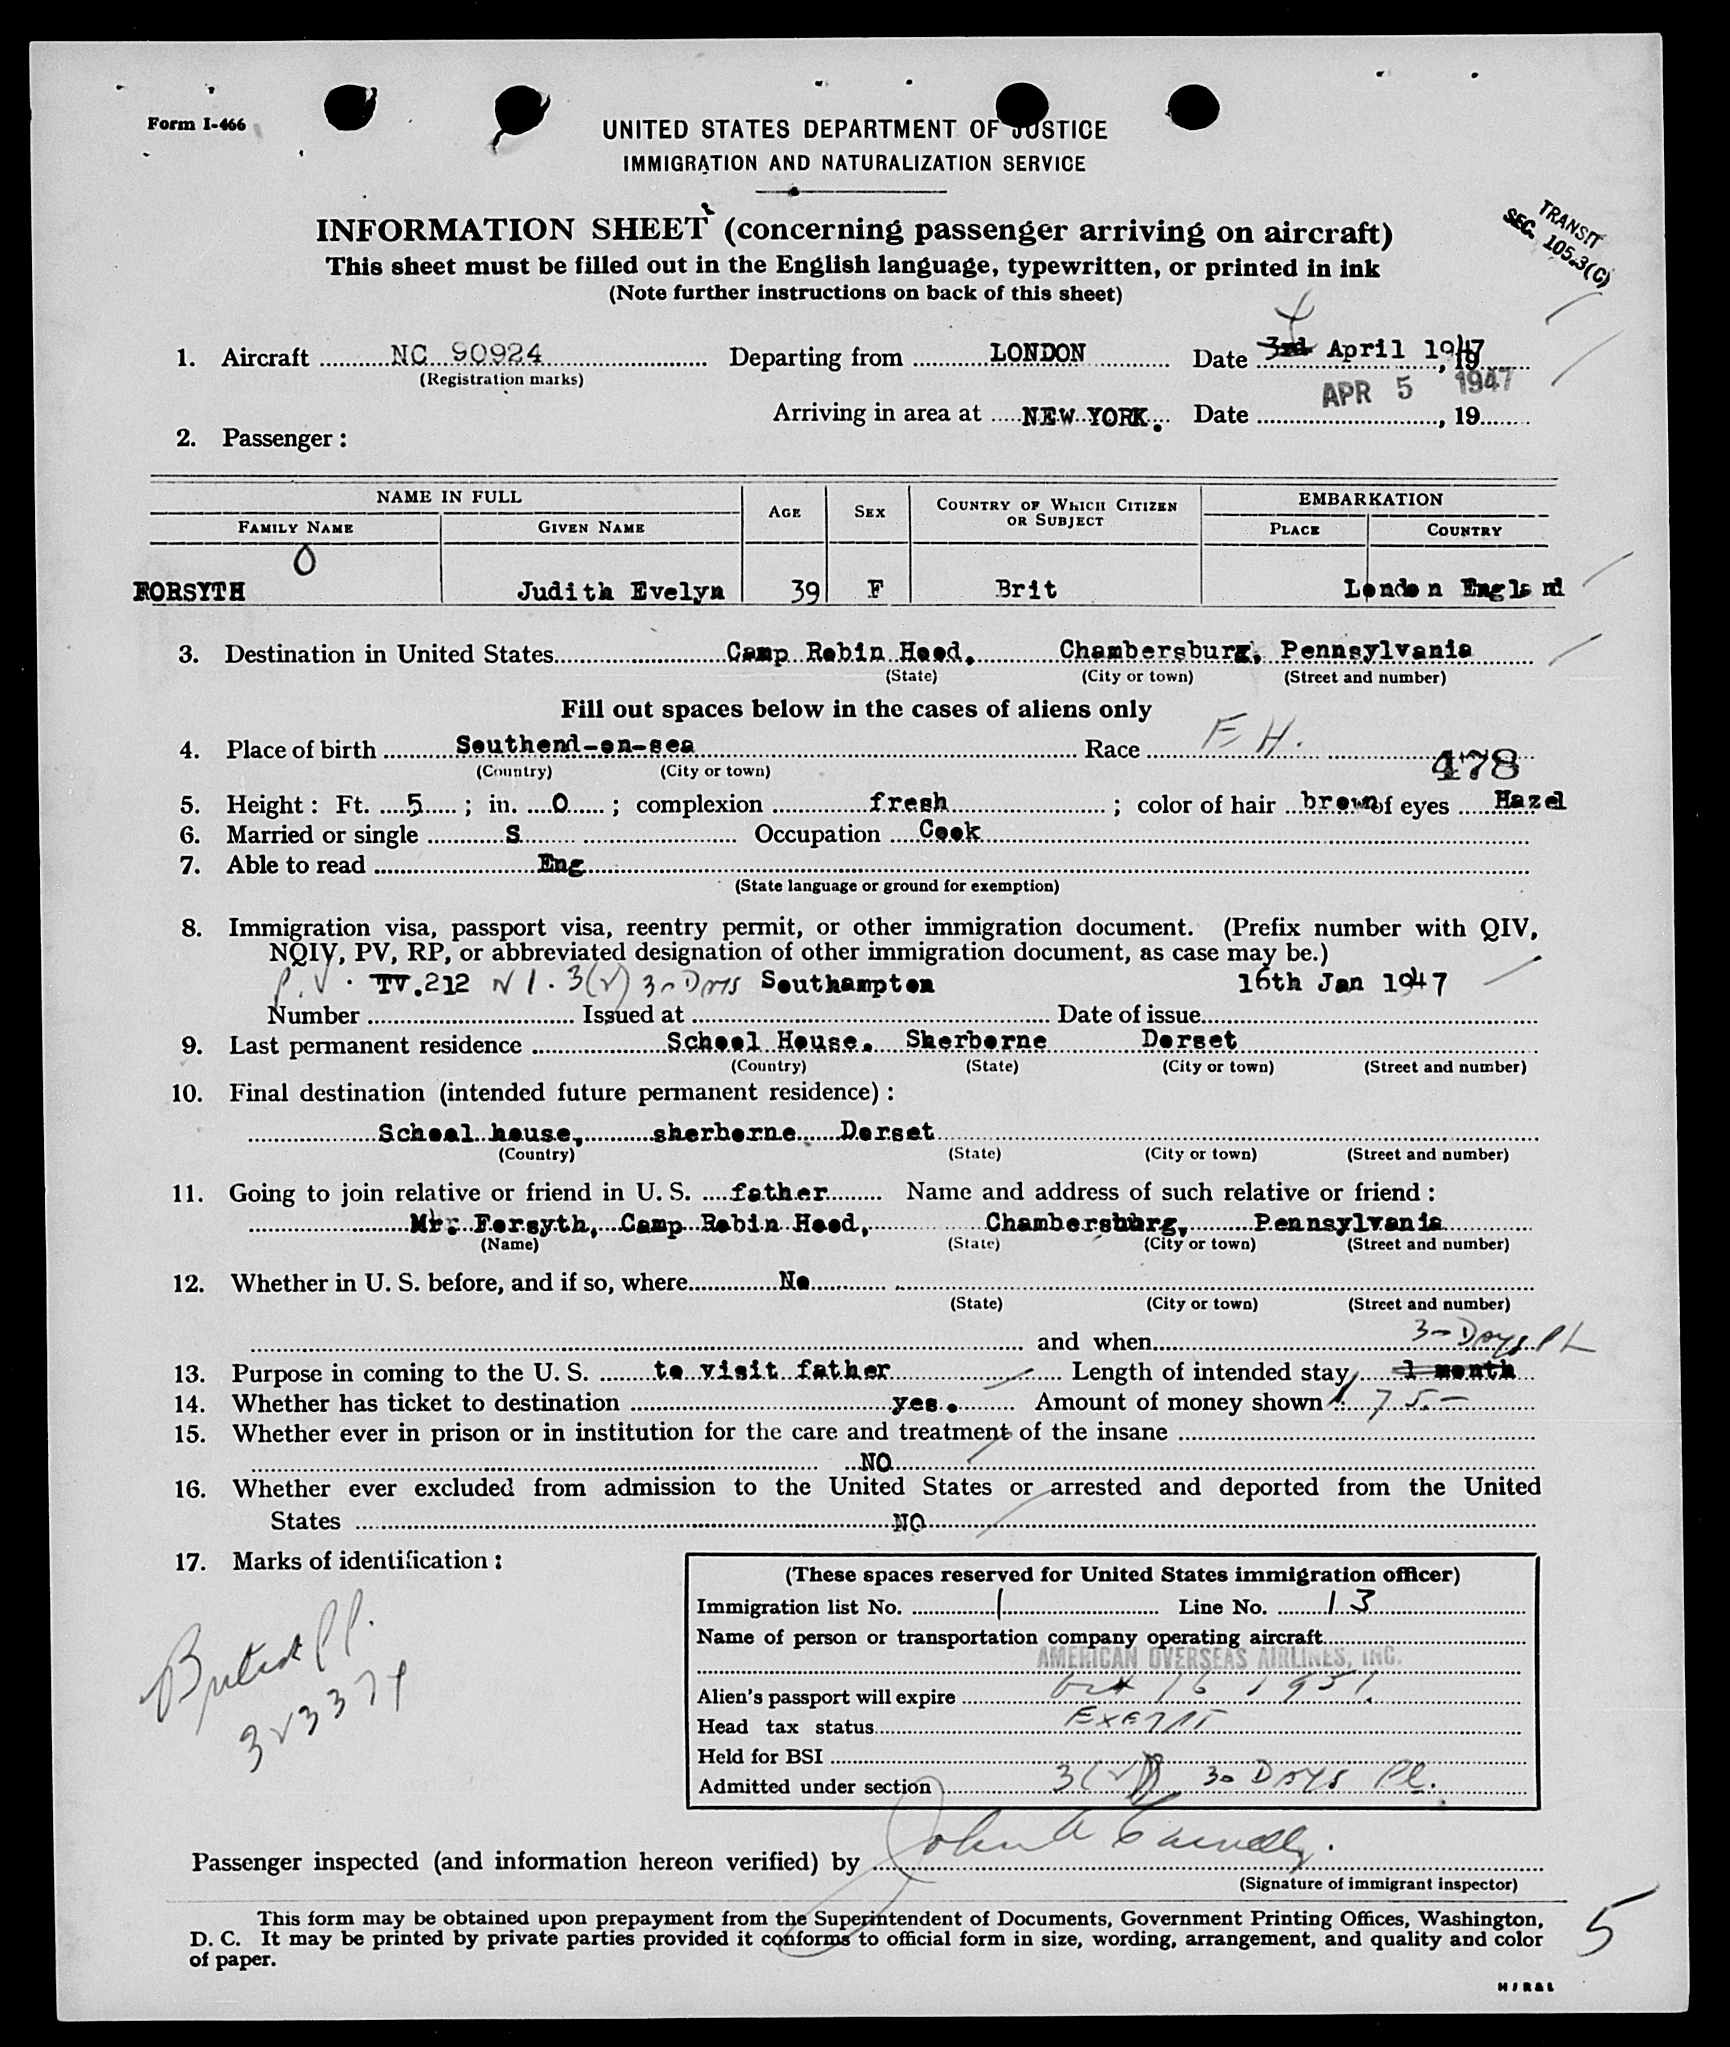 Form I-466
UNITED STATES DEPARTMENT OF JUSTICE
IMMIGRATION AND NATURALIZATION SERVICE
INFORMATION SHEET (concerning passenger arriving on aircraft)
This sheet must be filled out in the English language, typewritten, or printed in ink
(Note further instructions on back of this sheet)
TRANSIT
SEC. 105.3(C)
4
1. Aircraft NC 90924 Departing from LONDON Date 3rd April 1947, 19
(Registration marks)
APR 5 1947
Arriving in area at NEW YORK. Date , 19
2. Passenger:
NAME IN FULL AGE SEX COUNTRY OF WHICH CITIZEN OR SUBJECT EMBARKATION
FAMILY NAME GIVEN NAME PLACE COUNTRY
O
FORSYTH Judith Evelyn 39 F Brit London England
3. Destination in United States Camp Robin Hood, Chambersburg, Pennsylvania
(State) (City or town) (Street and number)
Fill out spaces below in the cases of aliens only
4. Place of birth Southend-on-sea Race
(Country) (City or town)
478
5. Height: Ft. 5; in. 0; complexion fresh; color of hair brown of eyes Hazel
6. Married or single S Occupation Cook
7. Able to read Eng
(State language or ground for exemption)
8. Immigration visa, passport visa, reentry permit, or other immigration document. (Prefix number with QIV,
NQIV, PV, RP, or abbreviated designation of other immigration document, as case may be.)
P.V. TV.212 3(2) 30 Days Southampton 16th Jan 1947
Number Issued at Date of issue
9. Last permanent residence School House. Sherborne Dorset
(Country) (State) (City or town) (Street and number)
10. Final destination (intended future permanent residence):
School house, sherborne Dorset
(Country) (State) (City or town) (Street and number)
11. Going to join relative or friend in U. S. father Name and address of such relative or friend:
Mr. Forsyth, Camp Robin Hood, Chambersburg, Pennsylvania
(Name) (State) (City or town) (Street and number)
12. Whether in U. S. before, and if so, where No
(State) (City or town) (Street and number)
and when
30 Days PL
13. Purpose in coming to the U. S. to visit father Length of intended stay 1 month
14. Whether has ticket to destination yes. Amount of money shown 75.-
15. Whether ever in prison or in institution for the care and treatment of the insane
NO
16. Whether ever excluded from admission to the United States or arrested and deported from the United
States NO
17. Marks of identification:
(These spaces reserved for United States immigration officer)
Immigration list No. 1 Line No. 13
Name of person or transportation company operating aircraft
AMERICAN OVERSEAS AIRLINES, INC.
Alien's passport will expire Oct 16 1951
Head tax status EXEMPT
Held for BSI
Admitted under section 3(2) 30 Days PL.
British PP.
Passenger inspected (and information hereon verified) by John
(Signature of immigrant inspector)
This form may be obtained upon prepayment from the Superintendent of Documents, Government Printing Offices, Washington,
D. C. It may be printed by private parties provided it conforms to official form in size, wording, arrangement, and quality and color
of paper.
5